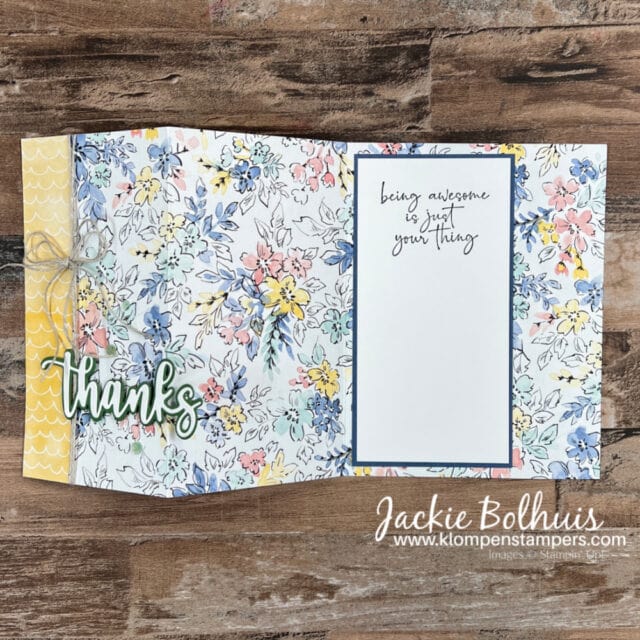 being awesome
is just
your thing
thanks
Jackie Bolhuis
www.klompenstampers.com
Images © Stampin' Up!